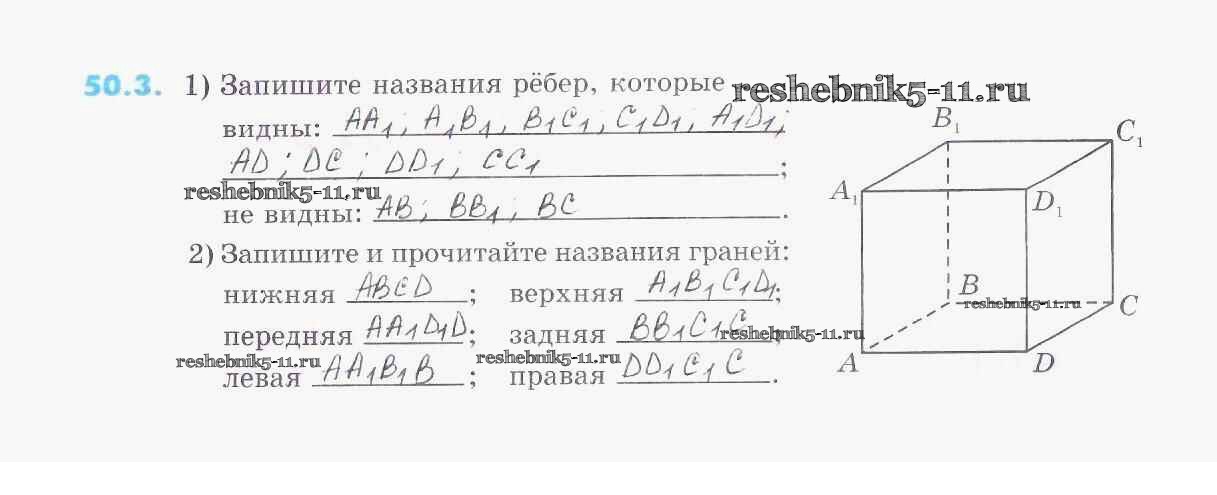 50.3. 1) Запишите названия рёбер, которые reshebnik5-11.ru
видны: AA₁; A₁B₁, B₁C₁, C₁D₁, A₁D₁;
AD; DC; DD₁; CC₁;
reshebnik5-11.ru
не видны: AB; BB₁; BC.
2) Запишите и прочитайте названия граней:
нижняя ABCD; верхняя A₁B₁C₁D₁;
передняя AA₁D₁D; задняя BB₁C₁C;
reshebnik5-11.ru
reshebnik5-11.ru
reshebnik5-11.ru
левая AA₁B₁B; правая DD₁C₁C.
B₁
C₁
A₁
D₁
B
reshebnik5-11.ru
C
A
D